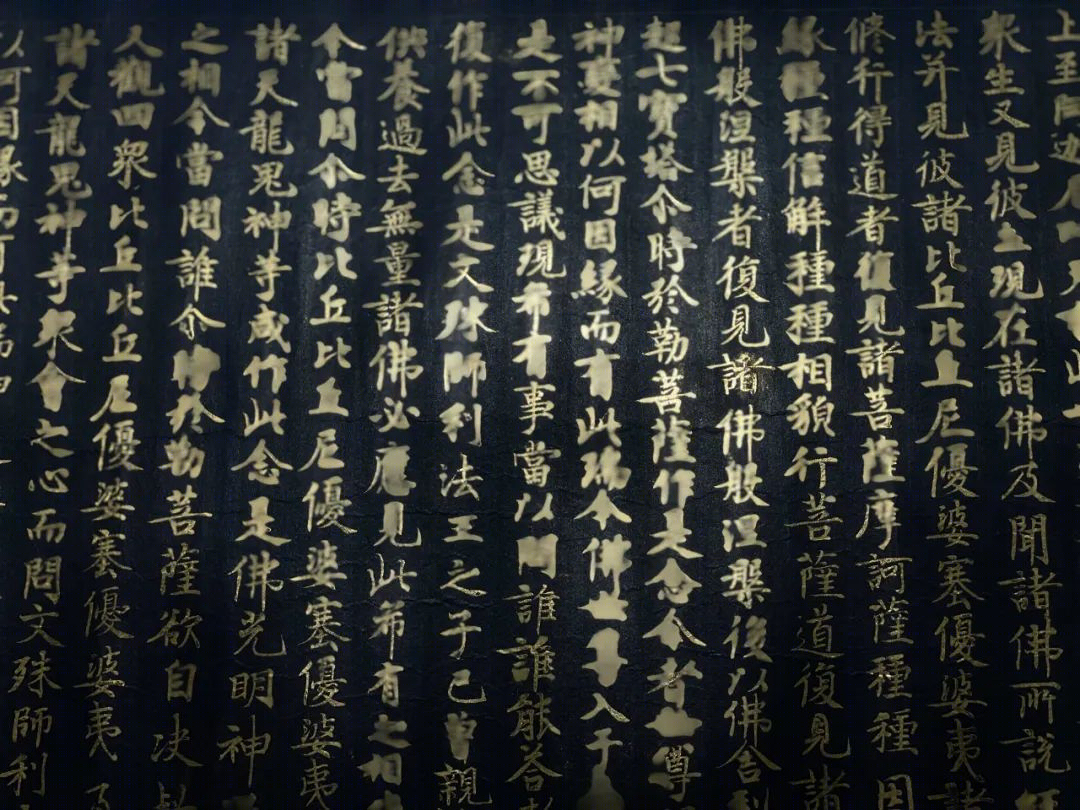 上至阿迦尼天此
眾生又見彼土現在諸佛及聞諸佛所說
法并見彼諸比丘比丘尼優婆塞優婆夷諸
修行得道者復見諸菩薩摩訶薩種種因
緣種種信解種種相貌行菩薩道復見諸
佛般涅槃者復見諸佛般涅槃後以佛舍利
起七寶塔尒時弥勒菩薩作是念今者世尊
神變相以何因緣而有此瑞今佛世尊入于
是不可思議現希有事當以問誰誰能荅
復作此念是文殊師利法王之子已曾親
供養過去無量諸佛必應見此希有之相
今當問尒時比丘比丘尼優婆塞優婆夷
諸天龍鬼神等咸作此念是佛光明神
之相今當問誰尒時弥勒菩薩欲自決
又觀四眾比丘比丘尼優婆塞優婆夷及
諸天龍鬼神等眾會之心而問文殊師利
以何因緣而有此瑞